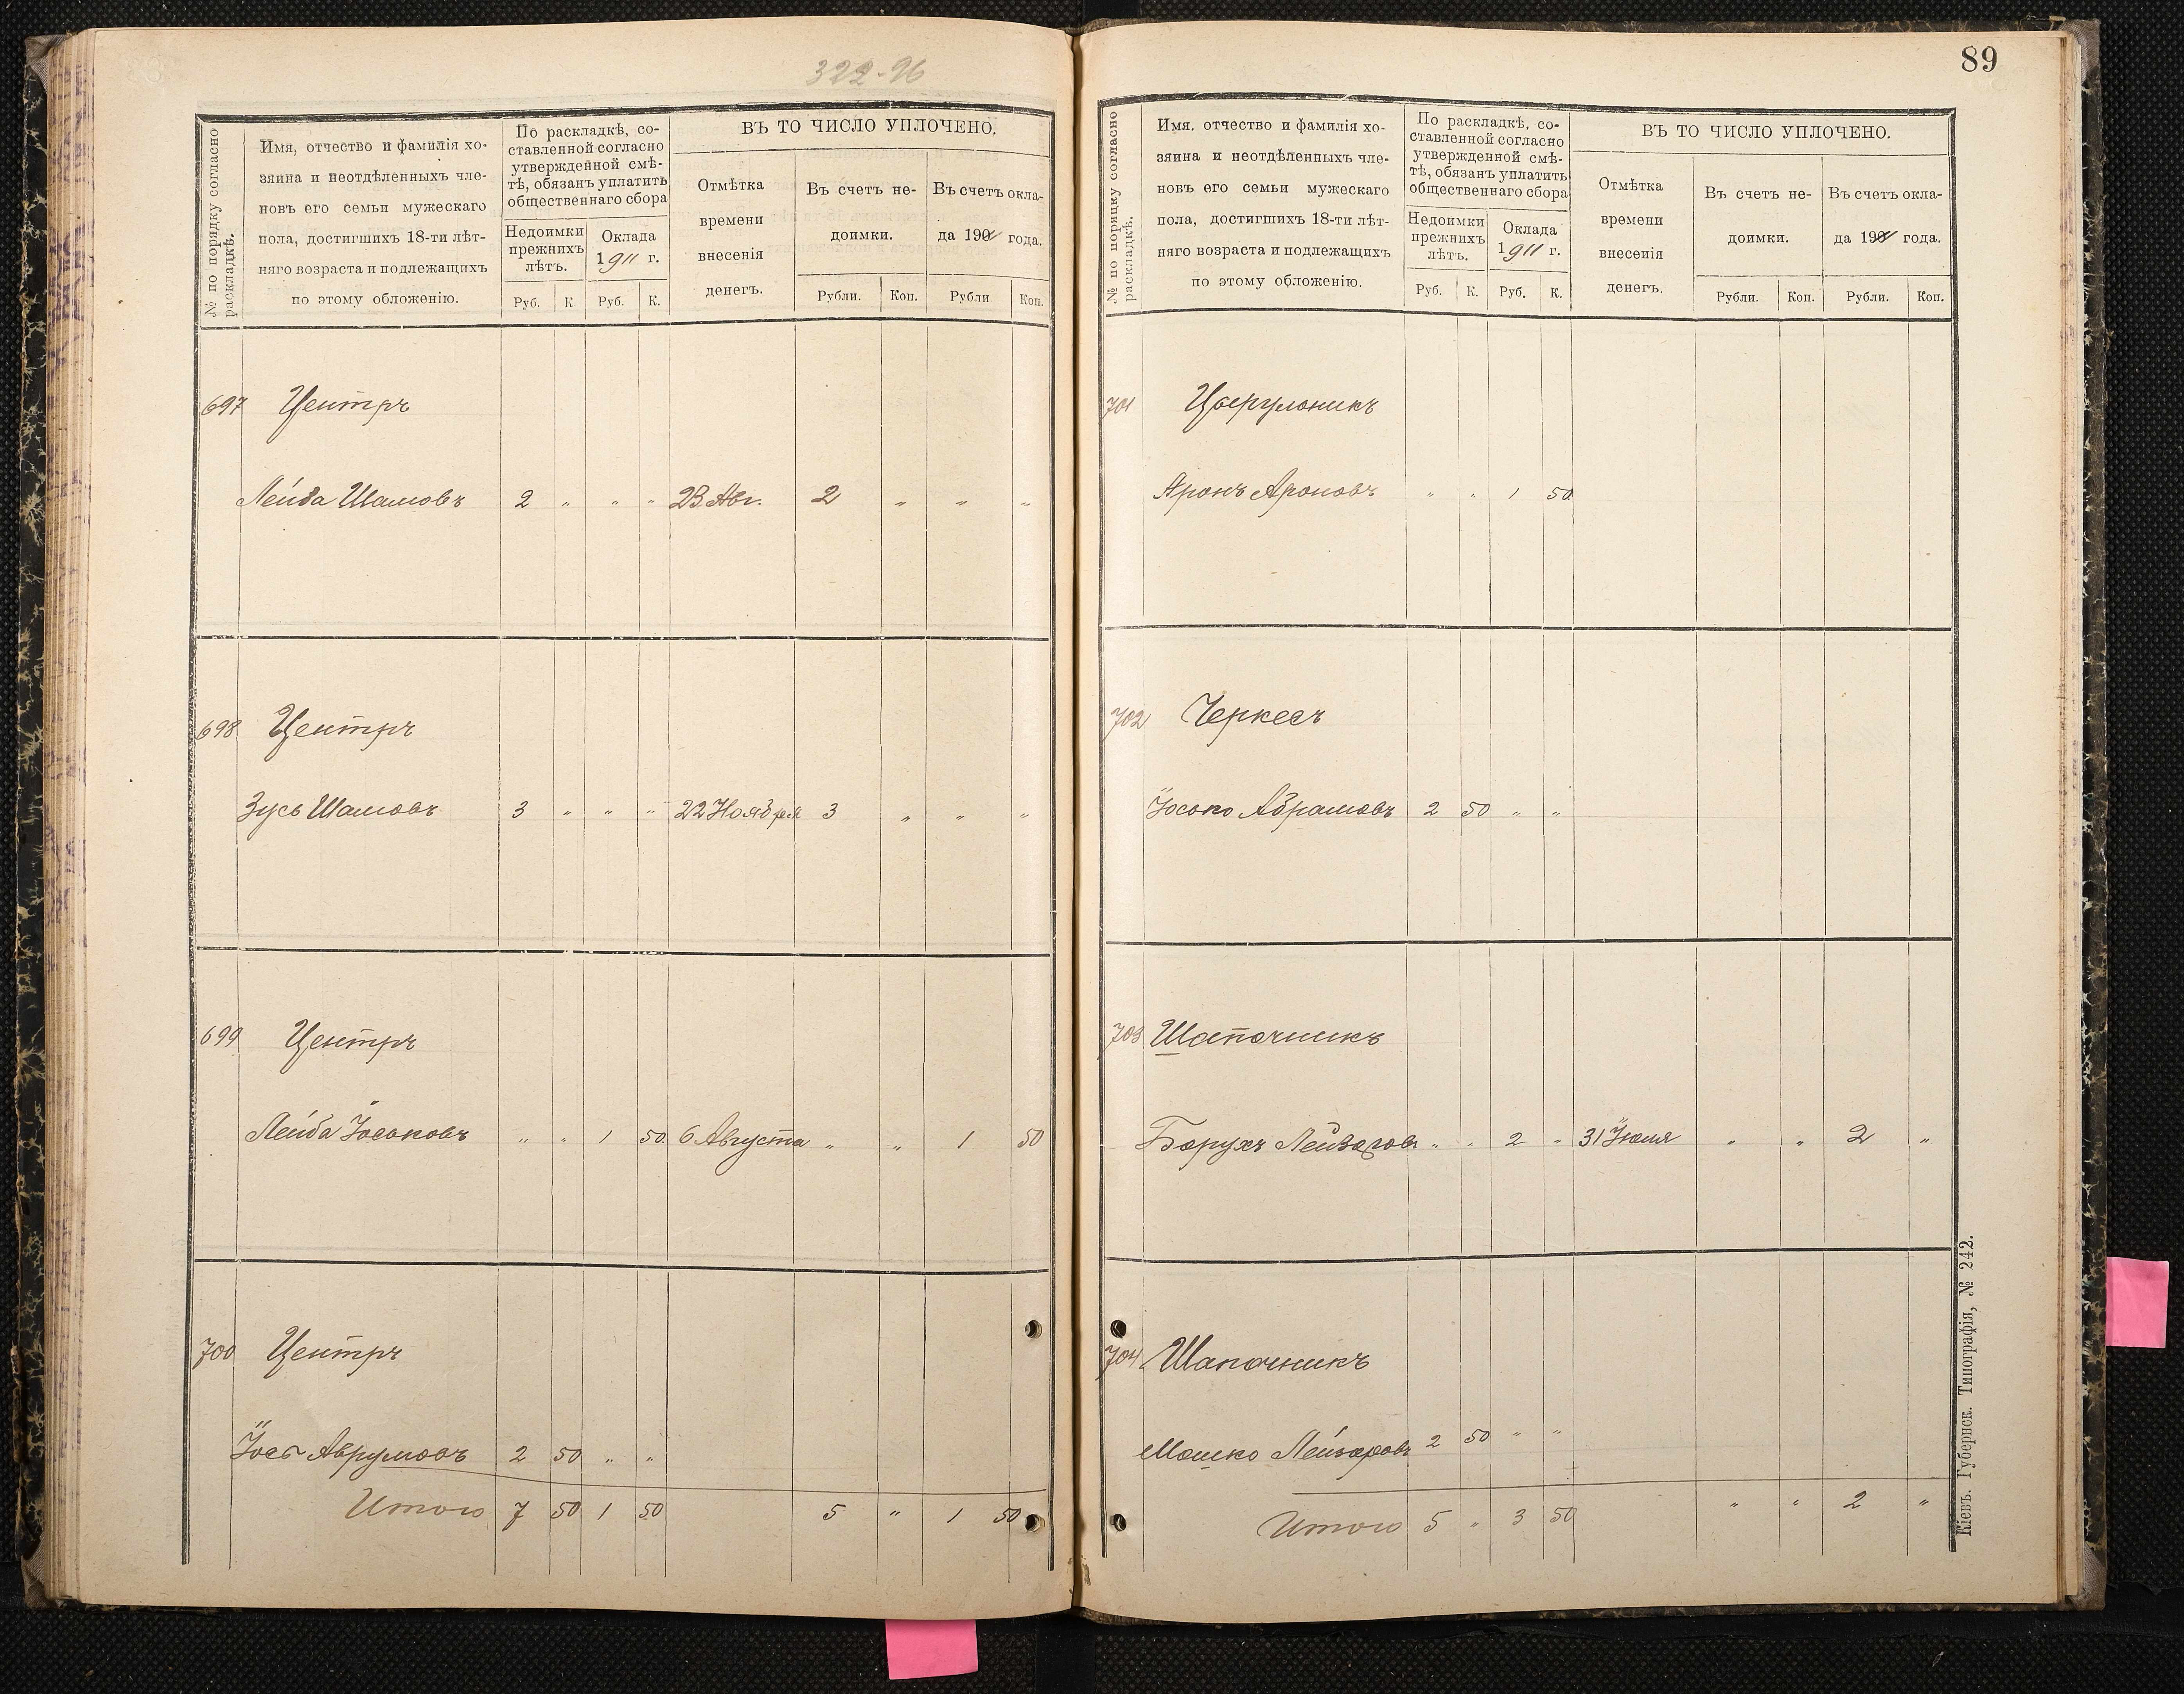 322-96
89
№ по порядку согласно
раскладкѣ.
Имя, отчество и фамилія хо-
зяина и неотдѣленныхъ чле-
новъ его семьи мужескаго
пола, достигшихъ 18-ти лѣт-
няго возраста и подлежащихъ
по этому обложенію.
По раскладкѣ, со-
ставленной согласно
утвержденной смѣ-
тѣ, обязанъ уплатить
общественнаго сбора
Недоимки
прежнихъ
лѣтъ.
Оклада
1911 г.
Руб. К. Руб. К.
ВЪ ТО ЧИСЛО УПЛОЧЕНО.
Отмѣтка
времени
внесенія
денегъ.
Въ счетъ не-
доимки.
Въ счетъ окла-
да 190 года.
Рубли. Коп. Рубли Коп.
697 Центръ
Лейба Шамовъ 2 " " " 23 Авг. 2 " " "
698 Центръ
Зусь Шамовъ 3 " " " 22 Ноября 3 " " "
699 Центръ
Лейба Іоськовъ " " 1 50 6 Августа " " 1 50
700 Центръ
Іось Аврумовъ 2 50 " "
Итого 7 50 1 50 5 " 1 50
№ по порядку согласно
раскладкѣ.
Имя. отчество и фамилія хо-
зяина и неотдѣленныхъ чле-
новъ его семьи мужескаго
пола, достигшихъ 18-ти лѣт-
няго возраста и подлежащихъ
по этому обложенію.
По раскладкѣ, со-
ставленной согласно
утвержденной смѣ-
тѣ, обязанъ уплатить
общественнаго сбора
Недоимки
прежнихъ
лѣтъ.
Оклада
1911 г.
Руб. К. Руб. К.
ВЪ ТО ЧИСЛО УПЛОЧЕНО.
Отмѣтка
времени
внесенія
денегъ.
Въ счетъ не-
доимки.
Въ счетъ окла-
да 190 года.
Рубли. Коп. Рубли. Коп.
701 Цверульникъ
Аронъ Ароновъ " " 1 50
702 Черкесъ
Іосько Абрамовъ 2 50 " "
703 Шапочникъ
Борухъ Лейзеровъ " " 2 " 31 Іюля " " 2 "
704 Шапочникъ
Мошко Лейзеровъ 2 50 " "
Итого 5 " 3 50 " " 2 "
Кіевъ. Губернск. Типографія, № 242.